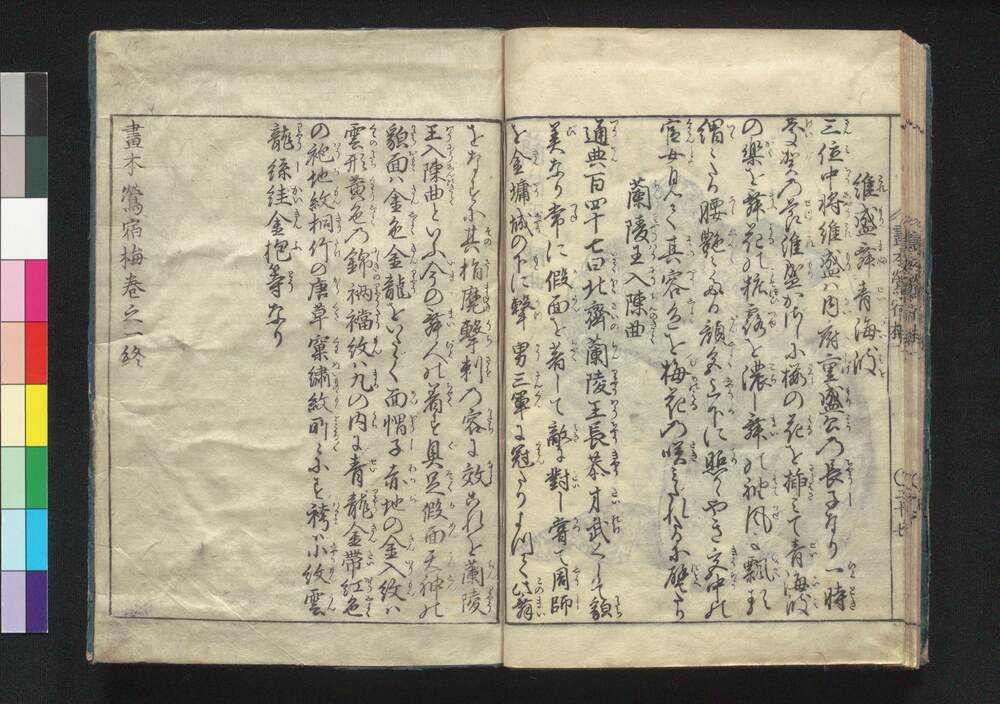 維盛舞青海波
三位中将維盛ハ内府重盛公乃長子なり一時
乃花維盛かさしに梅の花を挿ミて青海波
の楽を舞花の粧露を濃し舞の袖風に飄る
謂ゝ腰艶る顔色上下に照りかゝやき宮中の
官女見て其容色を梅花乃咲みたれたるに譬たり
蘭陵王入陳曲
通典百四十七曰北齊蘭陵王長恭才武くして貌
美なり常に假面を着して敵に對し嘗て周師
を金墉城の下に撃 男三軍に冠たり よつて此舞
をなすに其指麾撃刺乃容に效これを蘭陵
王入陳曲といふ今の舞人の着す具足假面天神の
貌面ハ金色金龍をいたゝく面帽子赤地の金入紋ハ
雲形黄色乃錦裲襠紋ハ丸の内に青龍金帶紅色
の袍地紋桐竹の唐草窠繍紋所々にす袴ハ小紋雲
龍絲鞋金桴等なり
畫本鶯宿梅巻之一終